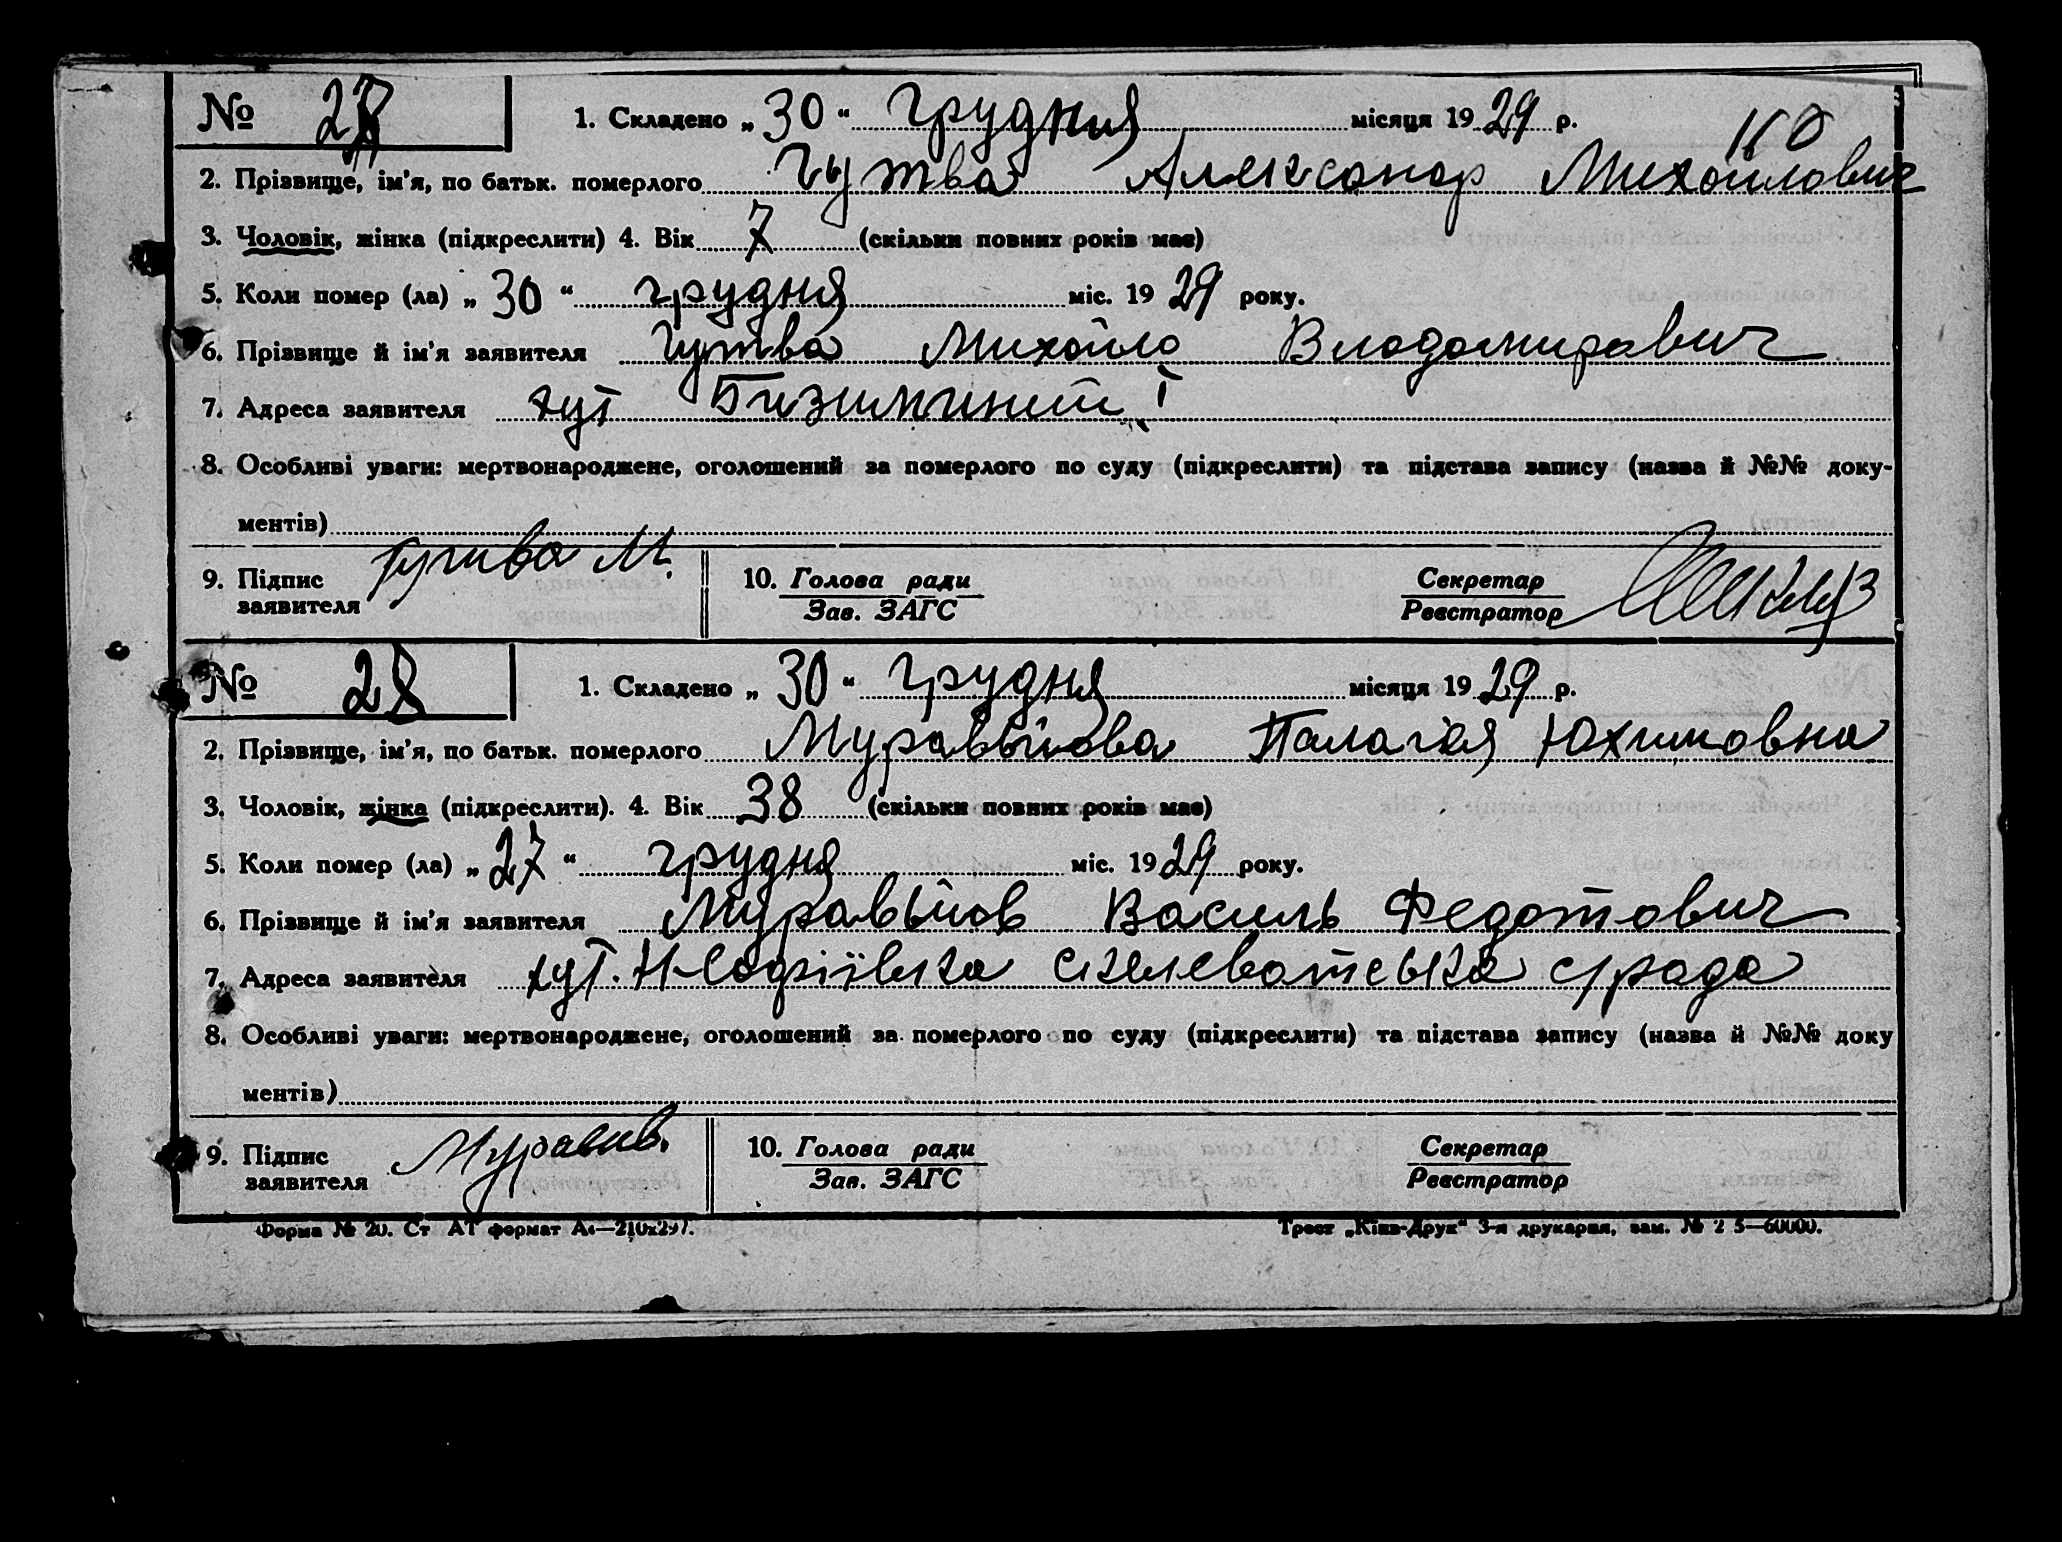 № 27 1. Складено „30“ грудня місяця 1929 р.
110
2. Прізвище, ім'я, по батьк. померлого Гутва Александр Михайлович
3. Чоловік, жінка (підкреслити) 4. Вік 7 (скільки повних років має)
5. Коли помер (ла) „30“ грудня міс. 1929 року.
6. Прізвище й ім'я заявителя Гутва Михайло Владомирович
7. Адреса заявителя хут І
8. Особливі уваги: мертвонароджене, оголошений за померлого по суду (підкреслити) та підстава запису (назва й №№ доку-
ментів)
9. Підпис заявителя Гутва М. 10. Голова ради Зав. ЗАГС Секретар Реєстратор
№ 28 1. Складено „30“ грудня місяця 1929 р.
2. Прізвище, ім'я, по батьк. померлого Муравьйова Палагія Юхимовна
3. Чоловік, жінка (підкреслити). 4. Вік 38 (скільки повних років має)
5. Коли помер (ла) „27“ грудня міс. 1929 року.
6. Прізвище й ім'я заявителя Муравьйов Василь Федотович
7. Адреса заявителя хут. Н-Софіївка с/рада
8. Особливі уваги: мертвонароджене, оголошений за померлого по суду (підкреслити) та підстава запису (назва й №№ доку
ментів)
9. Підпис заявителя 10. Голова ради Зав. ЗАГС Секретар Реєстратор
Форма № 20. Ст АТ формат А4—210х297. Трест „Київ-Друк“ 3-я друкарня, зам. № 2 5—60000.